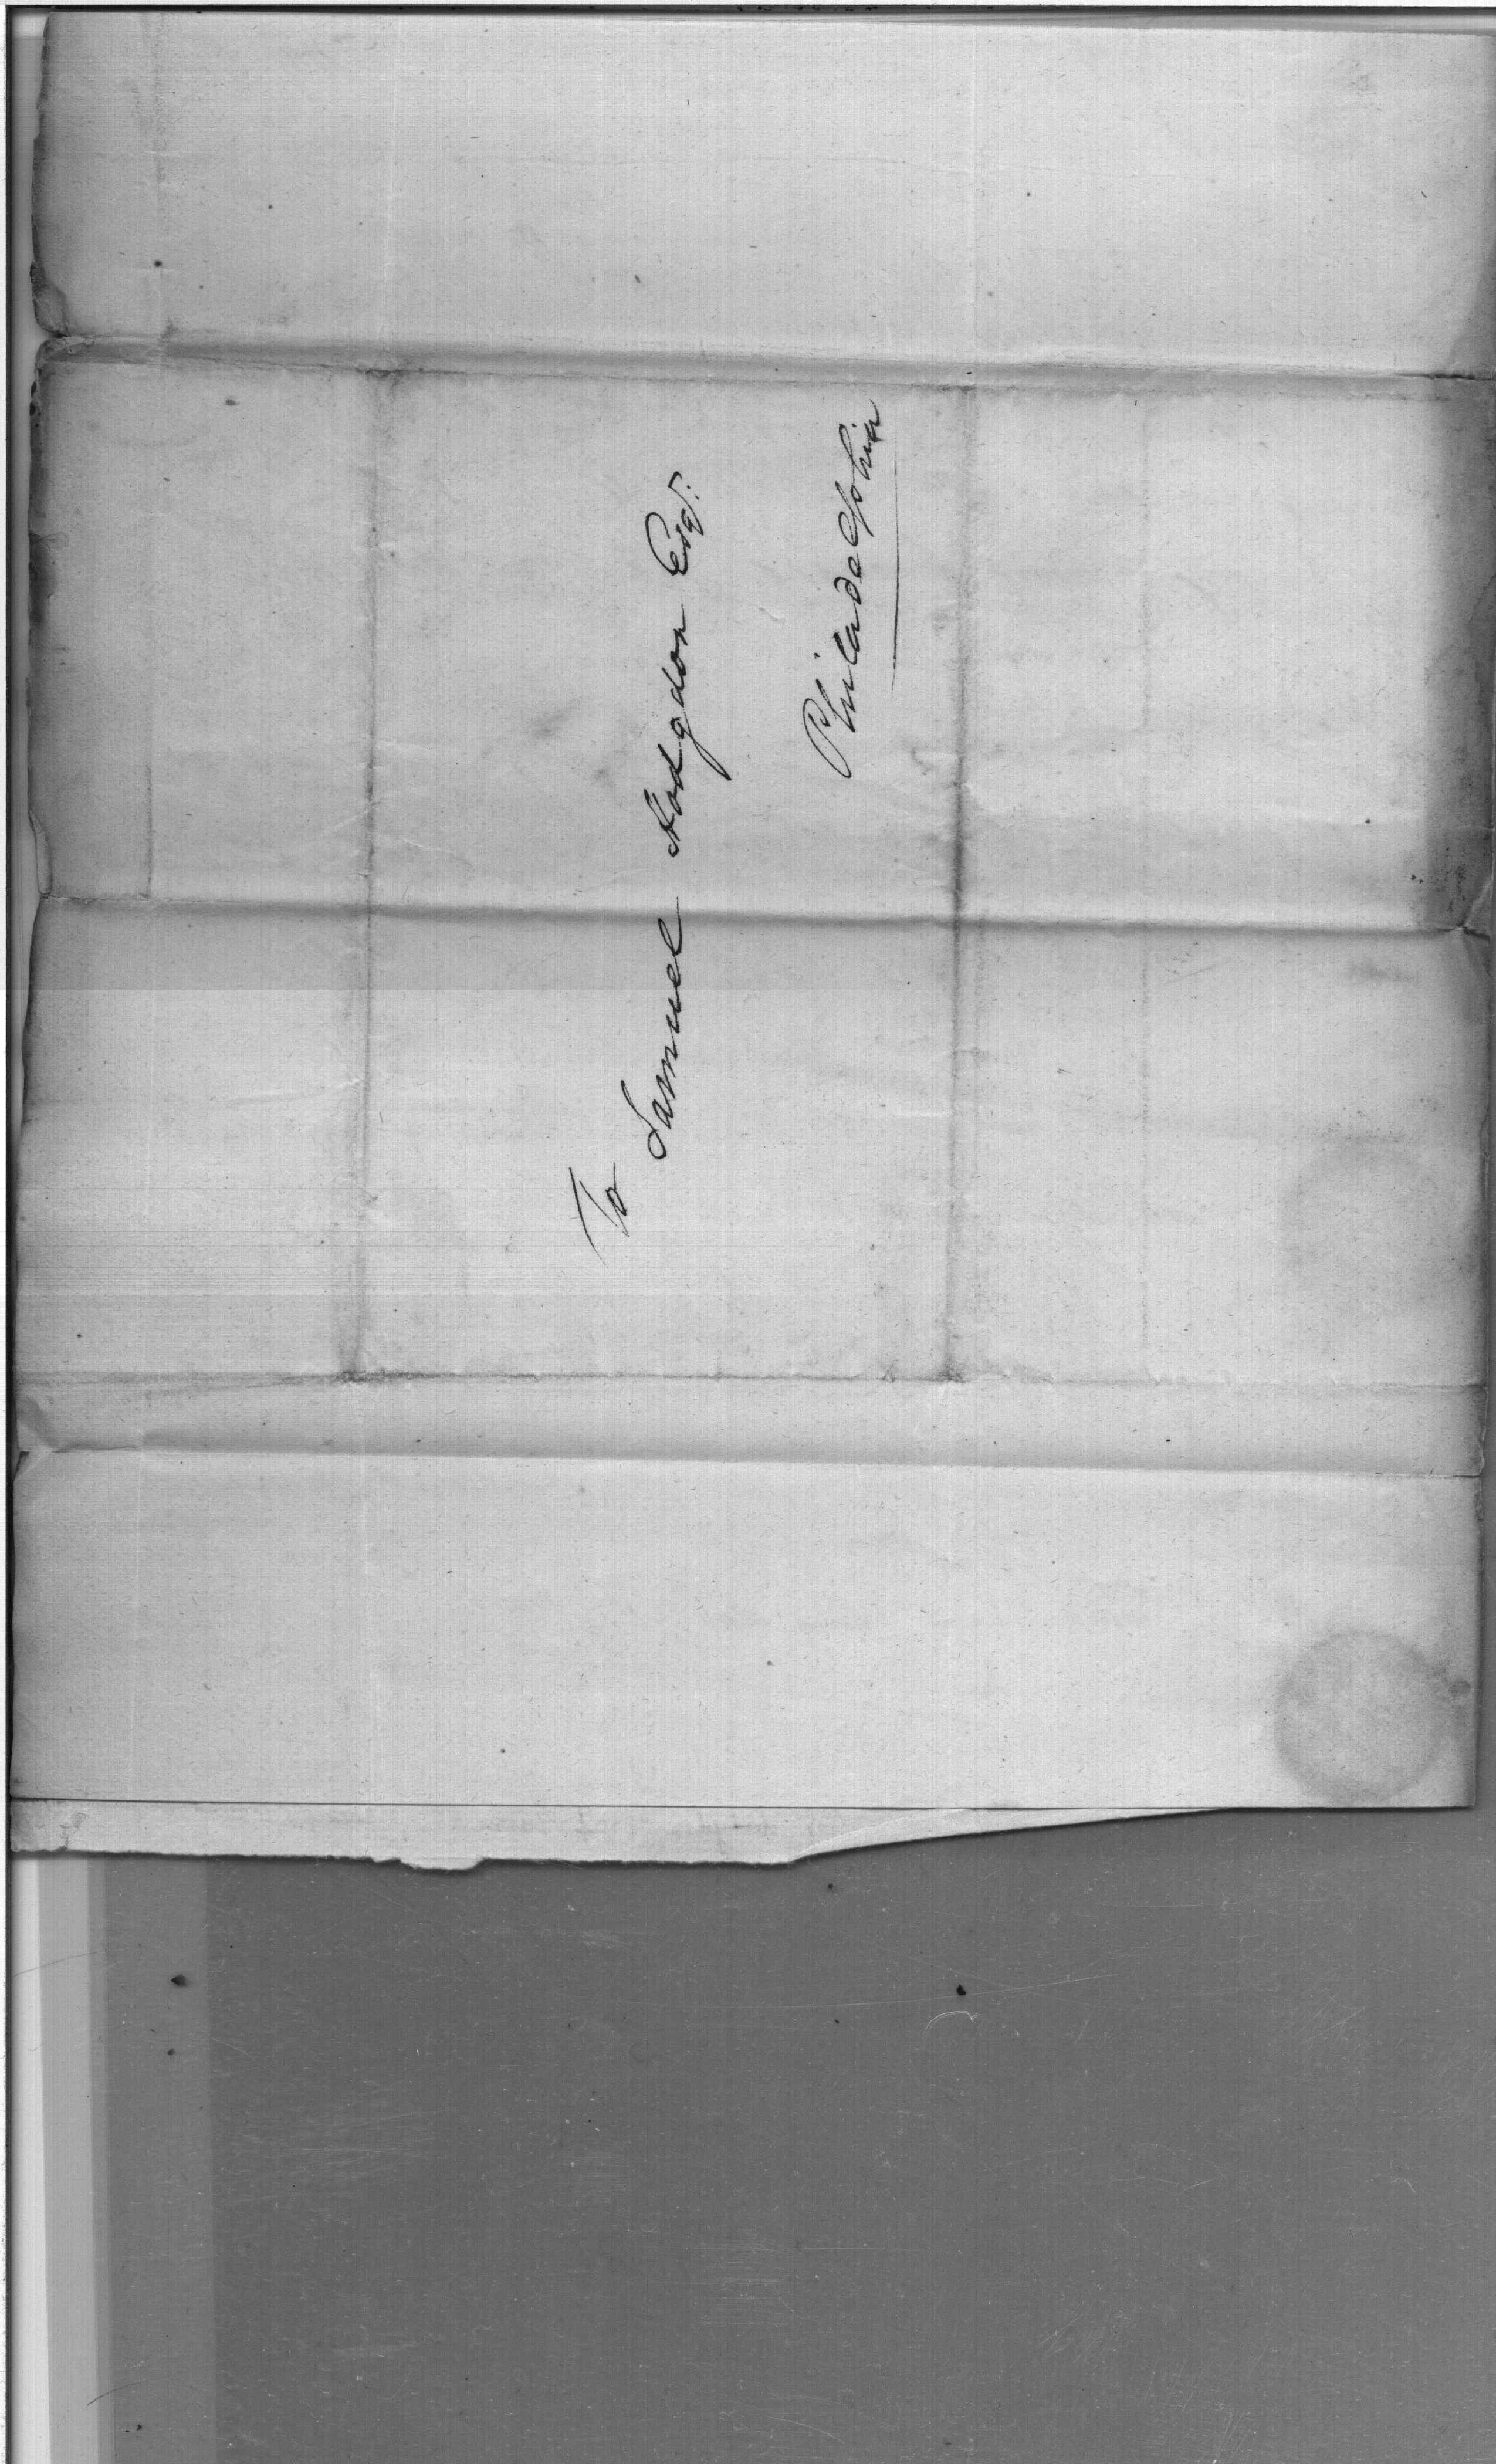 To
Samuel Hodgdon Esqr.
Philadelphia